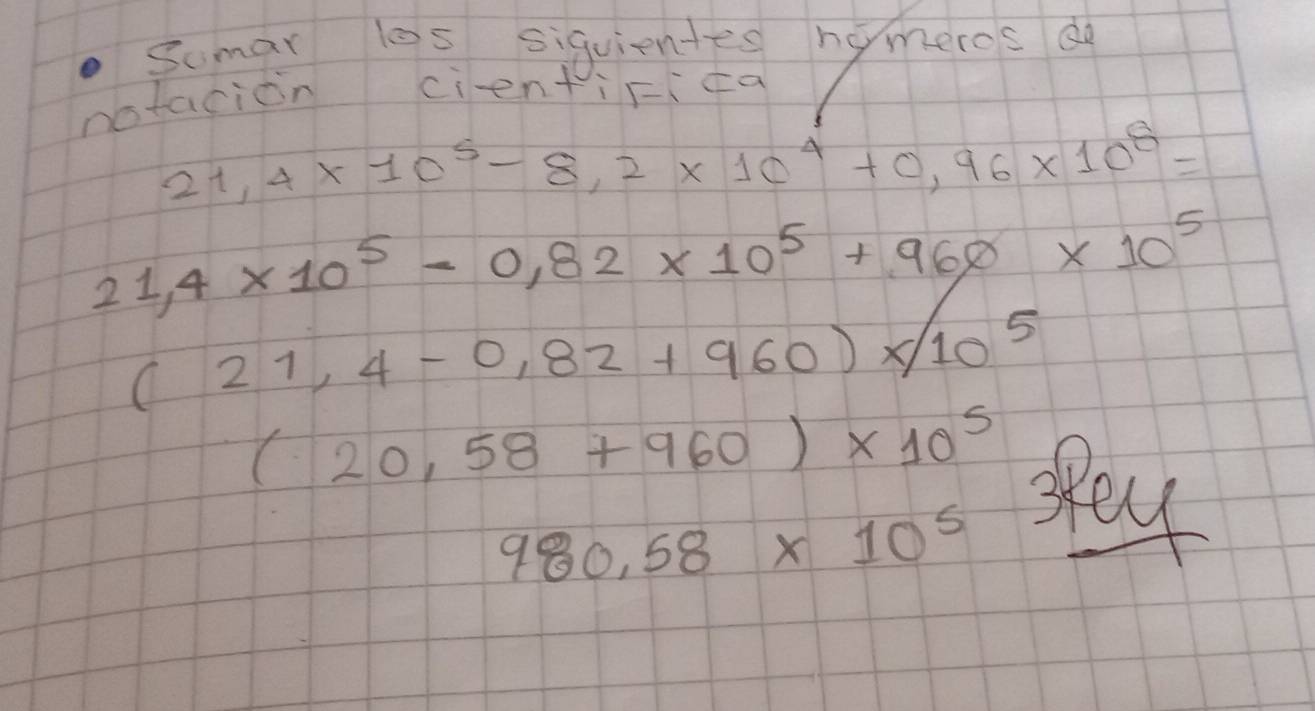 • Sumar los siguientes números de
notación científica
21,4 x 10⁵ - 8,2 x 10⁴ + 0,96 x 10⁸ =
21,4 x 10⁵ - 0,82 x 10⁵ + 960 x 10⁵
( 21,4 - 0,82 + 960 ) x 10⁵
( 20,58 + 960 ) x 10⁵
980,58 x 10⁵